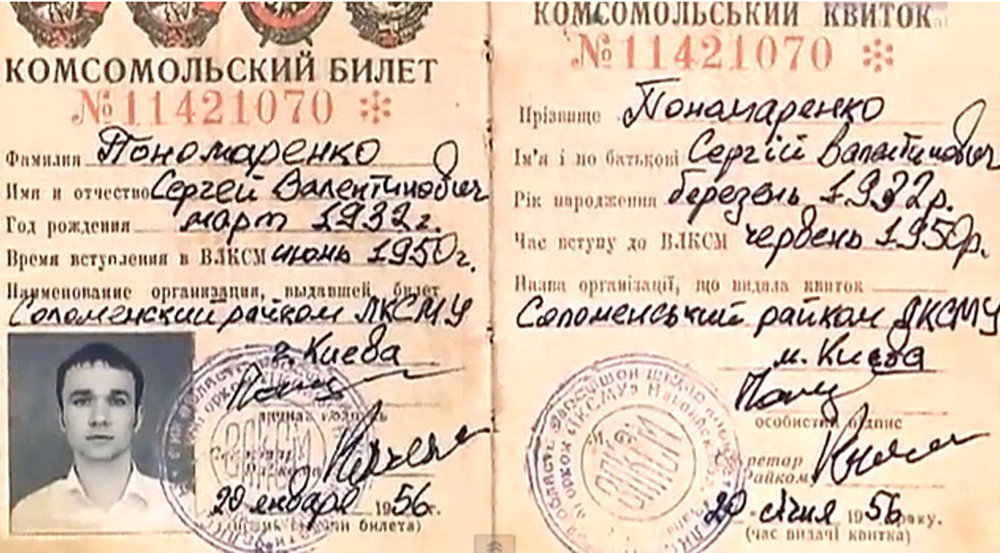 КОМСОМОЛЬСКИЙ БИЛЕТ
№ 11421070
Фамилия Пономаренко
Имя и отчество Сергей Валентинович
Год рождения март 1932 г.
Время вступления в ВЛКСМ июнь 1950 г.
Наименование организации, выдавшей билет
Соломенский райком ЛКСМУ
г. Киева
20 января 1956 г.
билета)
КОМСОМОЛЬСЬКИЙ КВИТОК
№ 11421070
Прізвище Пономаренко
Ім'я і по батькові Сергій Валентинович
Рік народження березень 1932 р.
Час вступу до ВЛКСМ червень 1950 р.
Назва організації, що видала квиток
Соломенський райком ЛКСМУ
м. Києва
особистий підпис
20 січня 1956 року.
(час видачі квитка)